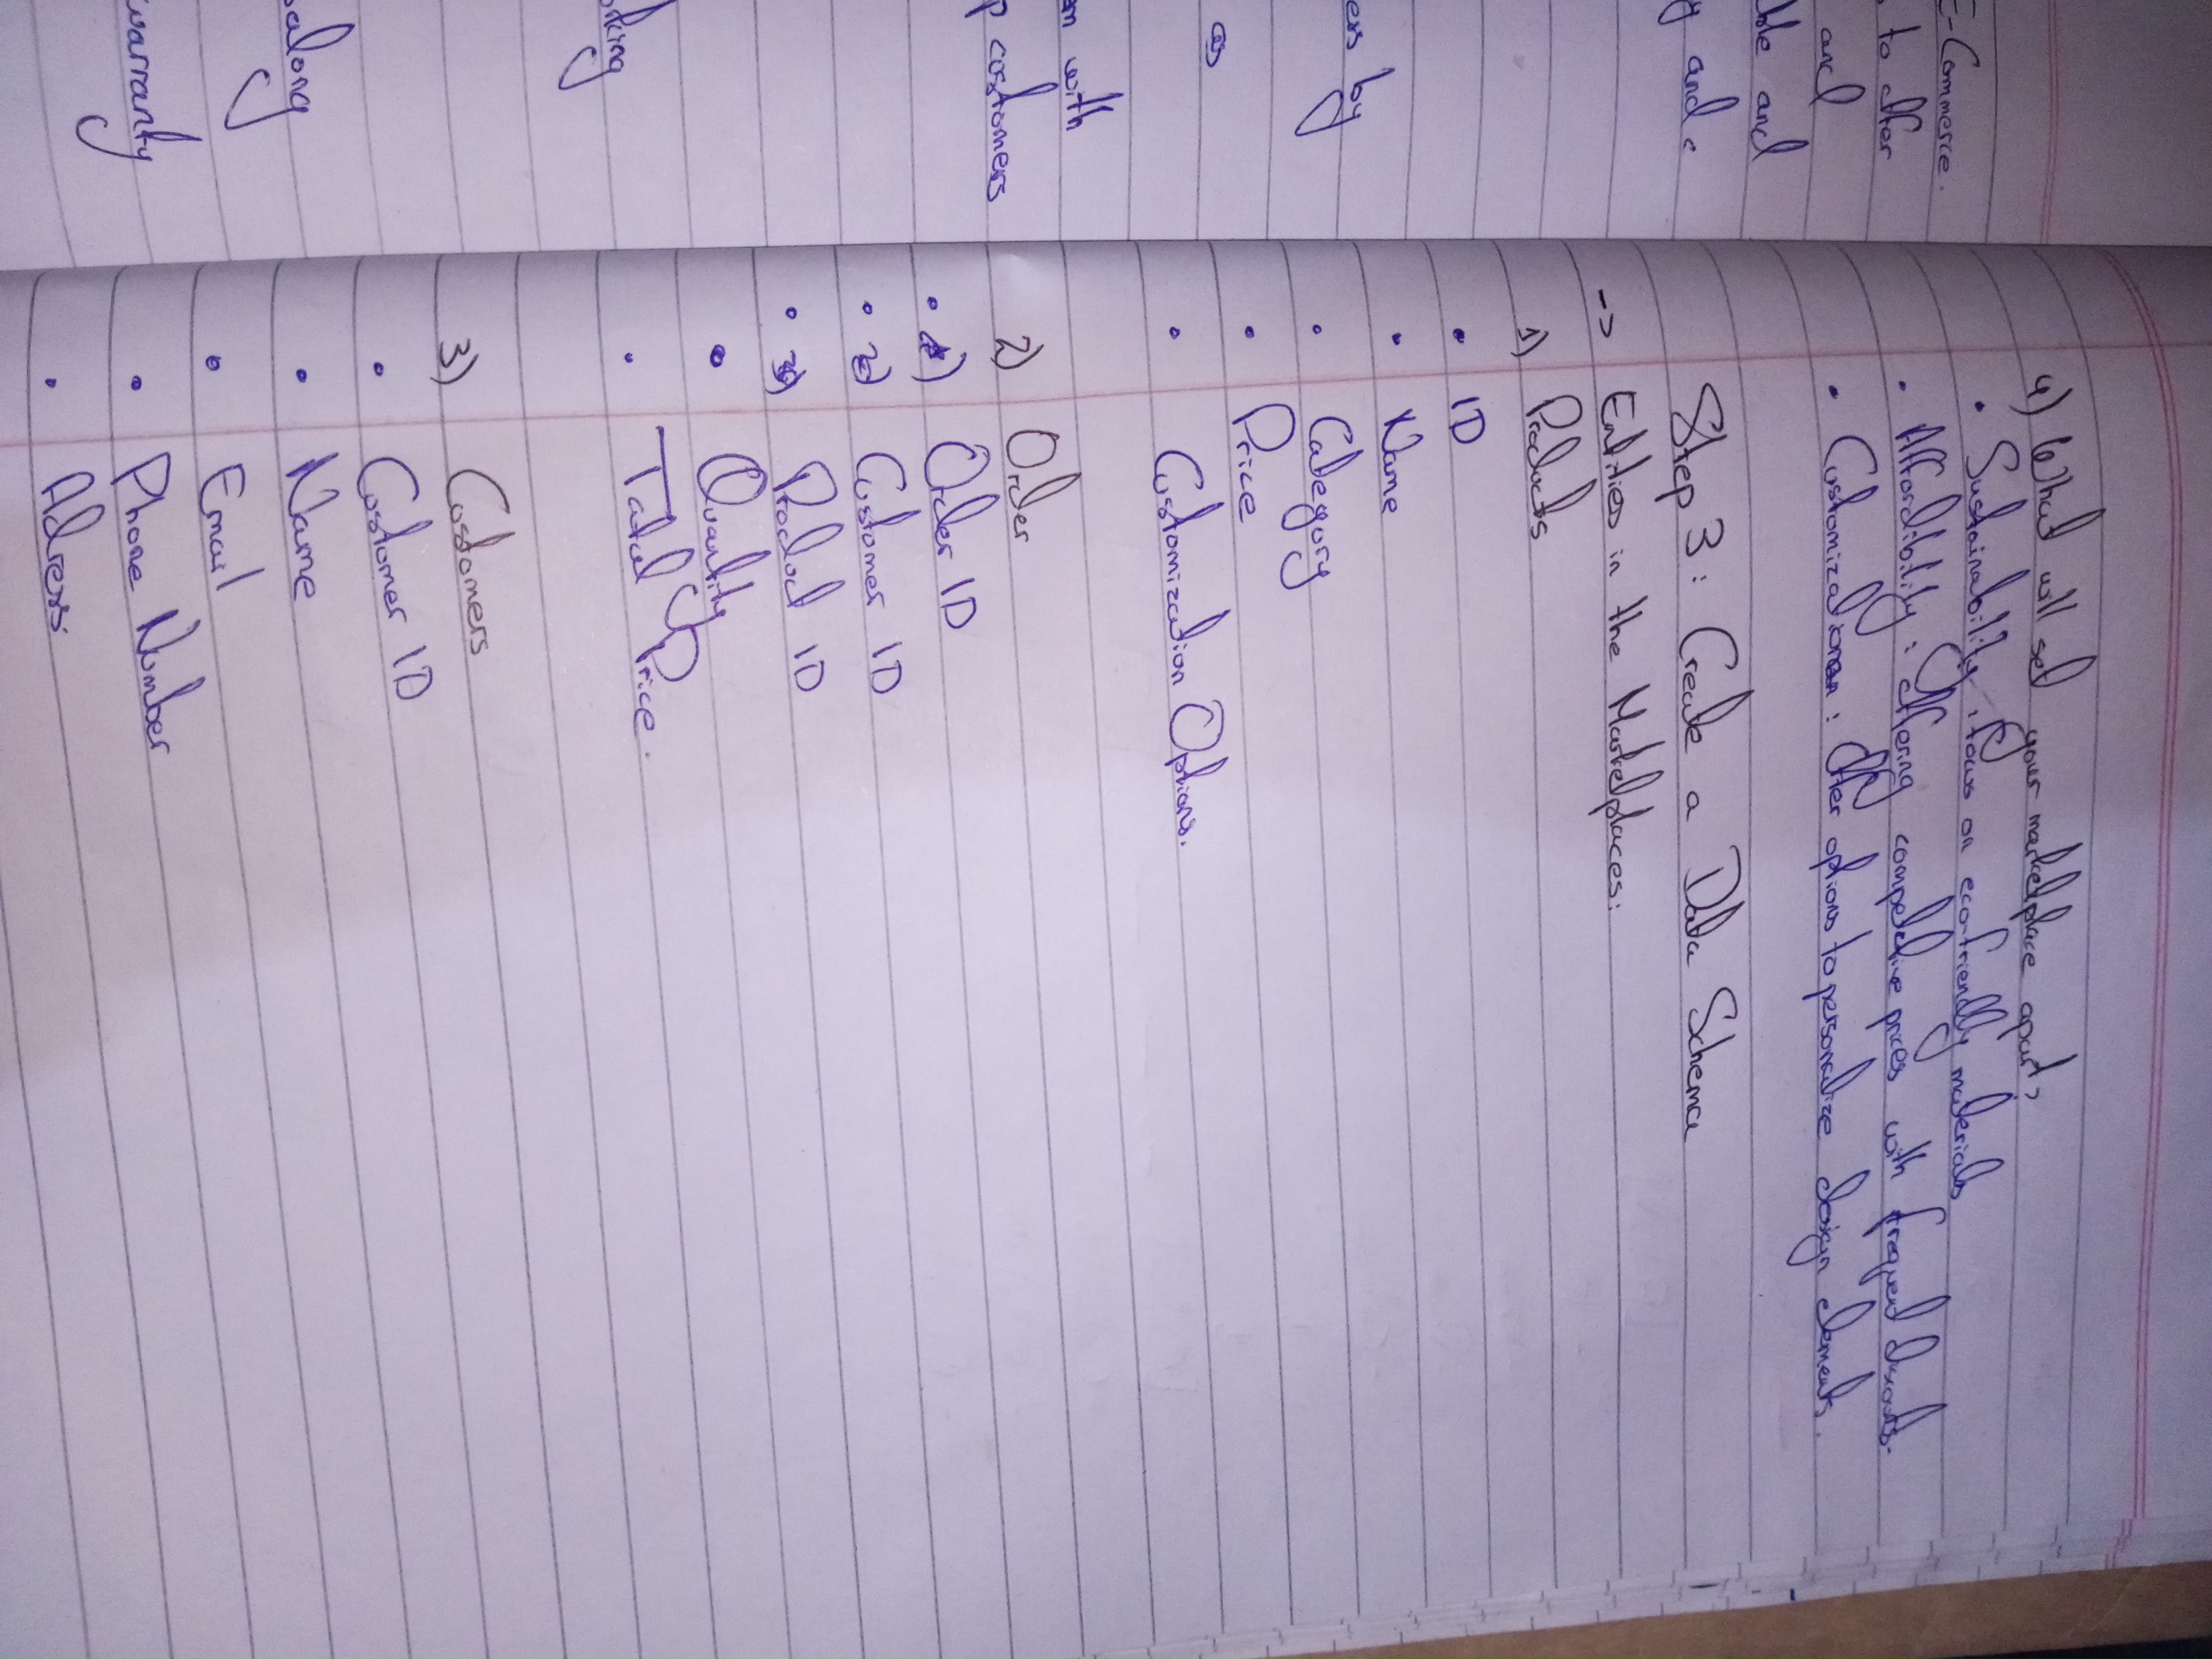 E-Commerce.
to offer
and
ble and
y and
ers by
as
m with
p customers
oking
along
warranty
4) What will set your marketplace apart?
• Sustainability : focus on eco-friendly materials
• Affordibility : Offering competetive prices with frequent discounts.
• Customization : Offer options to personalize design elements.
Step 3 : Create a Data Schema
-> Entities in the Marketplaces :
1) Products
• ID
• Name
• Category
• Price
• Customization Options.
2) Order
• Order ID
• Customer ID
• Product ID
• Quantity
• Total Price.
3) Customers
• Customer ID
• Name
• Email
• Phone Number
• Adress.